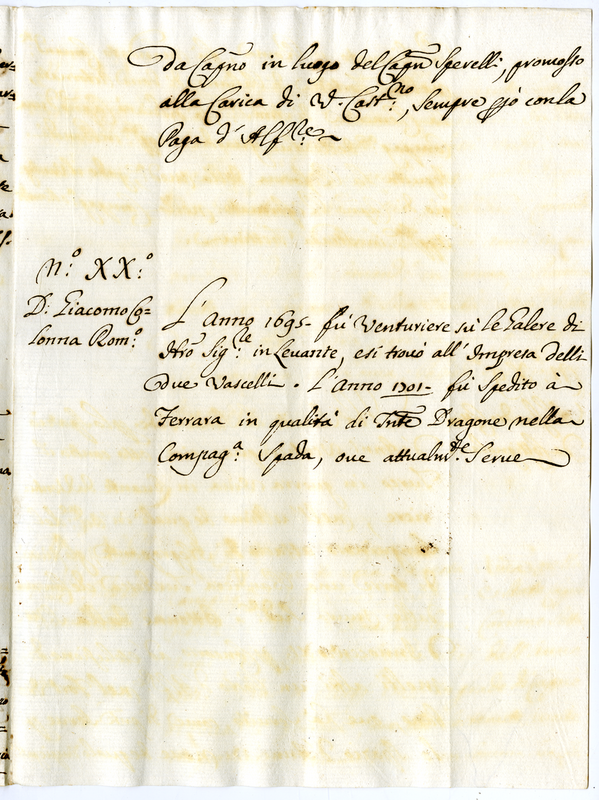 da Capno in luogo del Capn Sperelli, promosso
alla Carica di V. Cast:no, sempre però con la
Paga d'Alf:re
N:o XX:o
D: Giacomo Co=
lonna Rom:o
L'Anno 1695- fù Venturiere sù le Galere di
Nro Sig:re in Levante, e si trovò all'Impresa delli
due Vascelli. L'Anno 1701- fù spedito à
Ferrara in qualità di Tnte Dragone nella
Compag:a Spada, ove attualm:te Serve